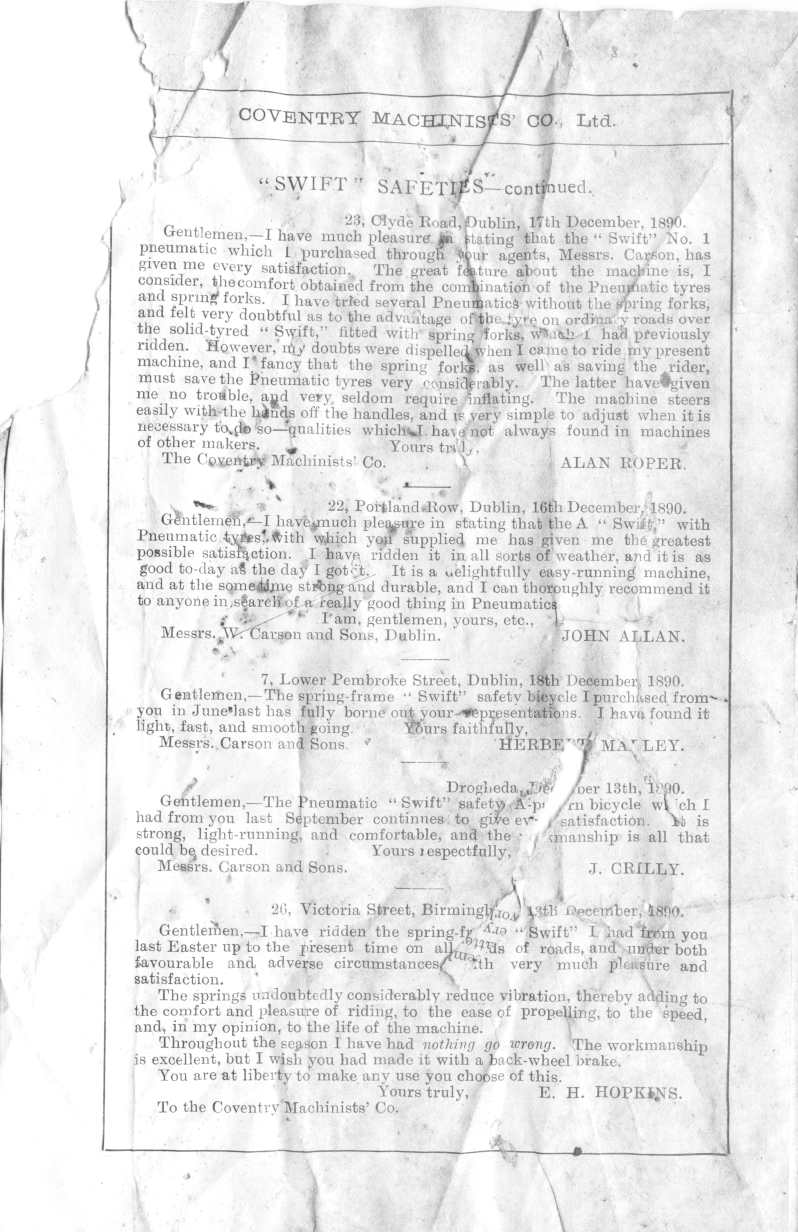 COVENTRY MACHINISTS' CO., Ltd.
"SWIFT" SAFETIES—continued.
23, Clyde Road, Dublin, 17th December, 1890.
Gentlemen,—I have much pleasure in stating that the "Swift" No. 1
pneumatic which I purchased through your agents, Messrs. Carson, has
given me every satisfaction. The great feature about the machine is, I
consider, the comfort obtained from the combination of the Pneumatic tyres
and spring forks. I have tried several Pneumatics without the spring forks,
and felt very doubtful as to the advantage of the tyre on ordinary roads over
the solid-tyred "Swift," fitted with spring forks, which I had previously
ridden. However, my doubts were dispelled when I came to ride my present
machine, and I fancy that the spring forks, as well as saving the rider,
must save the Pneumatic tyres very considerably. The latter have given
me no trouble, and very seldom require inflating. The machine steers
easily with the hands off the handles, and is very simple to adjust when it is
necessary to do so—qualities which I have not always found in machines
of other makers. Yours truly,
The Coventry Machinists' Co. ALAN ROPER.
22, Portland Row, Dublin, 16th December, 1890.
Gentlemen,—I have much pleasure in stating that the A "Swift," with
Pneumatic tyres, with which you supplied me has given me the greatest
possible satisfaction. I have ridden it in all sorts of weather, and it is as
good to-day as the day I got it. It is a delightfully easy-running machine,
and at the sometime strong and durable, and I can thoroughly recommend it
to anyone in search of a really good thing in Pneumatics
I am, gentlemen, yours, etc.,
Messrs. W. Carson and Sons, Dublin. JOHN ALLAN.
7, Lower Pembroke Street, Dublin, 18th December, 1890.
Gentlemen,—The spring-frame "Swift" safety bicycle I purchased from
you in June last has fully borne out your representations. I have found it
light, fast, and smooth going. Yours faithfully,
Messrs. Carson and Sons. HERBERT
Drogheda, December 13th, 1890.
Gentlemen,—The Pneumatic "Swift" safety A-pattern bicycle which I
had from you last September continues to give every satisfaction. It is
strong, light-running, and comfortable, and the workmanship is all that
could be desired. Yours respectfully,
Messrs. Carson and Sons. J. CRILLY.
26, Victoria Street, Birmingham, 13th December, 1890.
Gentlemen,—I have ridden the spring-frame "Swift" I had from you
last Easter up to the present time on all kinds of roads, and under both
favourable and adverse circumstances, with very much pleasure and
satisfaction.
The springs undoubtedly considerably reduce vibration, thereby adding to
the comfort and pleasure of riding, to the ease of propelling, to the speed,
and, in my opinion, to the life of the machine.
Throughout the season I have had nothing go wrong. The workmanship
is excellent, but I wish you had made it with a back-wheel brake.
You are at liberty to make any use you choose of this.
Yours truly, E. H. HOPKINS.
To the Coventry Machinists' Co.